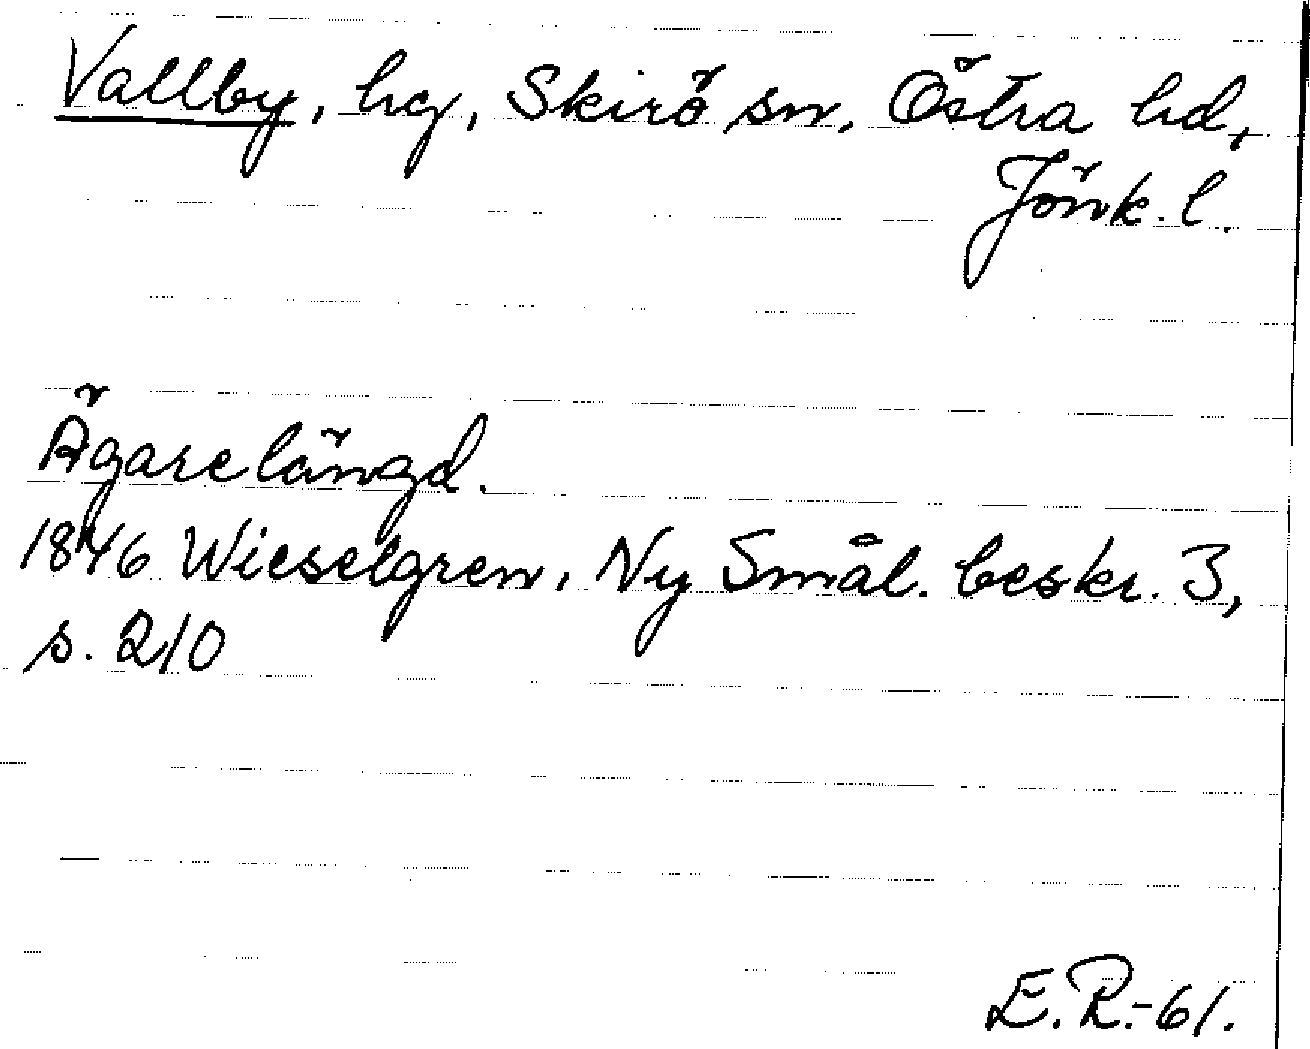 Vallby, hg, Skirö sn, Östra hd,
Jönk. l.
Ägarelängd.
1846 Wieselgren, Ny Smål. beskr. 3,
s. 210
E.R.-61.